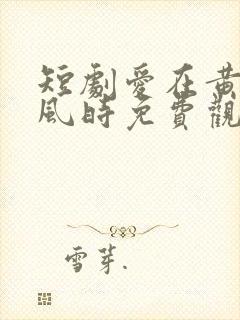 短劇愛在黃
風時免費觀
雪芽.